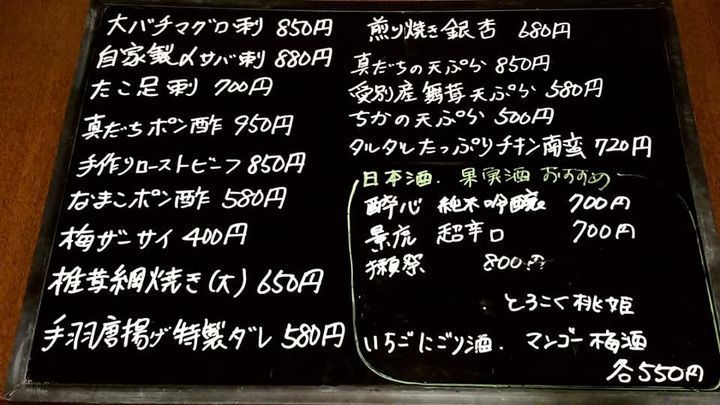 大バチマグロ刺 850円
自家製〆サバ刺 880円
たこ足刺 700円
真だちポン酢 950円
手作りローストビーフ 850円
なまこポン酢 580円
梅ザーサイ 400円
椎茸網焼き(大) 650円
手羽唐揚げ特製ダレ 580円
煎り焼き銀杏 680円
真だちの天ぷら 850円
愛別産舞茸天ぷら 580円
ちかの天ぷら 500円
タルタルたっぷりチキン南蛮 720円
日本酒．果実酒 おすすめ
酔心 純米吟醸 700円
景虎 超辛口 700円
獺祭 800円
とろこく桃姫
いちごにごり酒． マンゴー梅酒
各550円